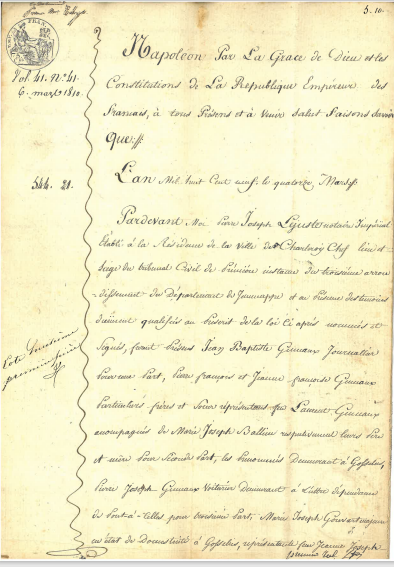 5. 10.
Vol. 41. N.° 41
6. mars 1810.
Napoléon Par La Grace de Dieu et les
Constitutions de La République Empereur des
francais, à tous Présens et à Venir Salut faisons Savoir
Que
544. 21.
L'an Mil huit Cent neuf, le quatorze Mars
Pardevant Pierre Joseph Lejuste notaire Impérial
Etabli à la Résidence de la Ville de Charleroy Chef lieu et
Siege du tribunal Civil de Première instance du troisieme arron
-dissement du Département de Jemmappe et en présence des temoins
dûement qualifiés au prescrit de la loi Ci après nommés et
Signés, furent Présens Jean Baptiste Gemaux Journallier
Pour une Part, Pierre françois et Jeanne françoise Gemaux
frères et Soeur représentans Laurent Gemaux
accompagnés de Marie Joseph Ballieu respectivement leurs Père
et mère Pour Seconde Part, les prénommés Demeurant à Gosselies,
Pierre Joseph Gemaux Voiturier Demeurant à dépendance
de Pont-à-Celles pour troisieme Part, Marie Joseph
en état de Domesticité à Gosselies, représentante feu Jeanne Joseph
premier